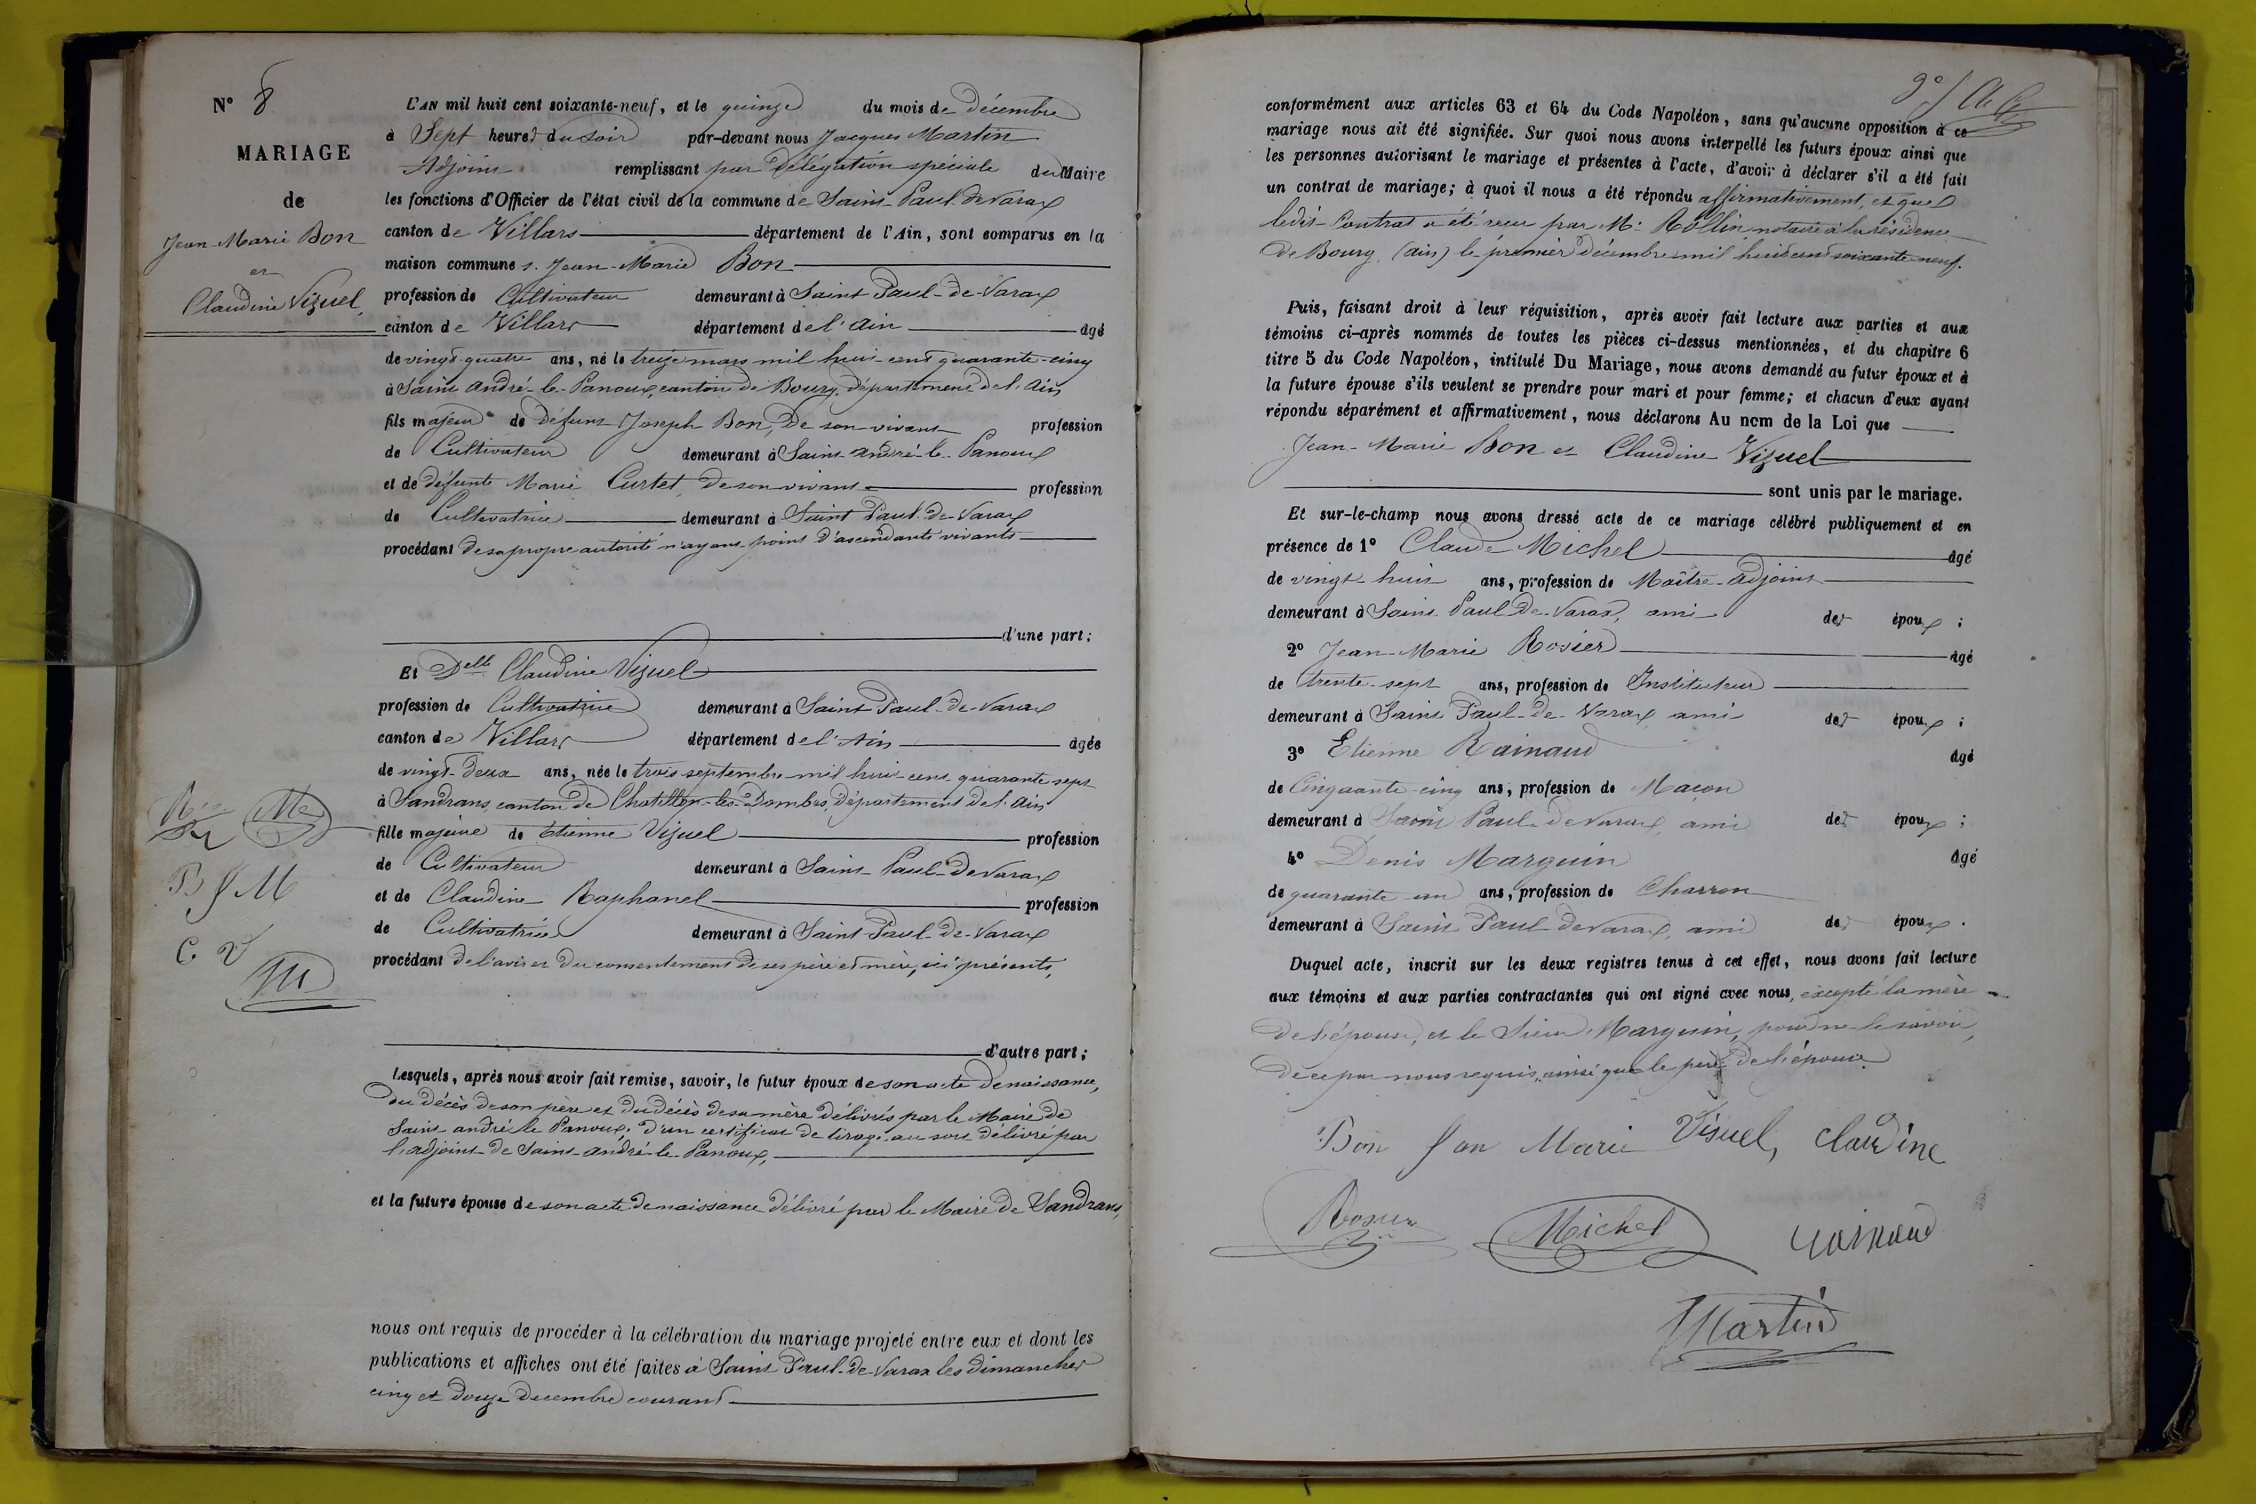 N° 8
MARIAGE
de
Jean-Marie Bon
et
Claudine Vizuel,
L'AN mil huit cent soixante-neuf, et le quinze du mois de décembre
à Sept heures du soir par-devant nous Jacques Martin
Adjoint remplissant par délégation spéciale du Maire
les fonctions d'Officier de l'état civil de la commune de Saint-Paul-de-Varax
canton de Villars département de l'Ain, sont comparus en la
maison commune s. Jean-Marie Bon
profession de Cultivateur demeurant à Saint Paul-de-Varax
canton de Villars département de l'Ain âgé
de vingt-quatre ans, né le treize mars mil huit-cent quarante-cinq
à Saint André-le-Panoux, canton de Bourg, département de l'Ain,
fils majeur de défunt Joseph Bon, de son vivant profession
de Cultivateur demeurant à Saint-André-le-Panoux
et de défunte Marie Curtet, de son vivant profession
de Cultivatrice demeurant à Saint Paul-de-Varax
procédant de sa propre autorité n'ayant point d'ascendants vivants
d'une part;
Et Delle Claudine Vizuel
profession de Cultivatrice demeurant à Saint Paul-de-Varax
canton de Villars département de l'Ain âgée
de vingt-deux ans, née le trois septembre mil huit-cent quarante-sept
à Sandrans, canton de Chatillon-les-Dombes, Département de l'Ain,
fille majeure de Etienne Vizuel profession
de Cultivateur demeurant à Saint-Paul-de-Varax
et de Claudine Raphanel profession
de Cultivatrice demeurant à Saint-Paul-de-Varax
procédant de l'avis et du consentement de ses père et mère, ici présents,
B J M
C. V
d'autre part;
Lesquels, après nous avoir fait remise, savoir, le futur époux de son acte de naissance,
du décès de son père et du décès de sa mère délivrés par le Maire de
Saint andré-le-Panoux, d'un certificat de tirage au sort délivré par
l'adjoint de Saint-andré-le-Panoux,
et la future épouse de son acte de naissance délivré par le Maire de Sandrans,
nous ont requis de procéder à la célébration du mariage projeté entre eux et dont les
publications et affiches ont été faites à Saint Paul-de-Varax les dimanches
cinq et douze decembre courant
conformément aux articles 63 et 64 du Code Napoléon, sans qu'aucune opposition à ce
mariage nous ait été signifiée. Sur quoi nous avons interpellé les futurs époux ainsi que
les personnes autorisant le mariage et présentes à l'acte, d'avoir à déclarer s'il a été fait
un contrat de mariage; à quoi il nous a été répondu affirmativement, et que
ledit Contrat a été reçu par M. Rollin notaire à la résidence
de Bourg, (ain) le premier décembre mil huit cent soixante-neuf.
Puis, faisant droit à leur réquisition, après avoir fait lecture aux parties et aux
témoins ci-après nommés de toutes les pièces ci-dessus mentionnées, et du chapitre 6
titre 5 du Code Napoléon, intitulé Du Mariage, nous avons demandé au futur époux et à
la future épouse s'ils veulent se prendre pour mari et pour femme; et chacun d'eux ayant
répondu séparément et affirmativement, nous déclarons Au nom de la Loi que
Jean-Marie Bon et Claudine Vizuel
sont unis par le mariage.
Et sur-le-champ nous avons dressé acte de ce mariage célébré publiquement et en
présence de 1° Claude Michel âgé
de vingt-huit ans, profession de Maître-adjoint
demeurant à Saint-Paul-de-Varax, ami des époux;
2° Jean-Marie Rosier âgé
de trente-sept ans, profession de Instituteur
demeurant à Saint Paul-de-Varax, ami des époux;
3° Etienne Rainaud âgé
de Cinquante-cinq ans, profession de Maçon
demeurant à Saint Paul-de-Varax, ami des époux;
4° Denis Marguin âgé
de quarante-un ans, profession de Charron
demeurant à Saint Paul-de-Varax, ami des époux.
Duquel acte, inscrit sur les deux registres tenus à cet effet, nous avons fait lecture
aux témoins et aux parties contractantes qui ont signé avec nous, excepté la mère
de l'épouse, et le Sieur Marguin, pour ne le savoir,
de ce par nous requis, ainsi que le père de l'épouse.
Bon Jan Marie Visuel, Claudine
Rosier Michel rainaud
Martin